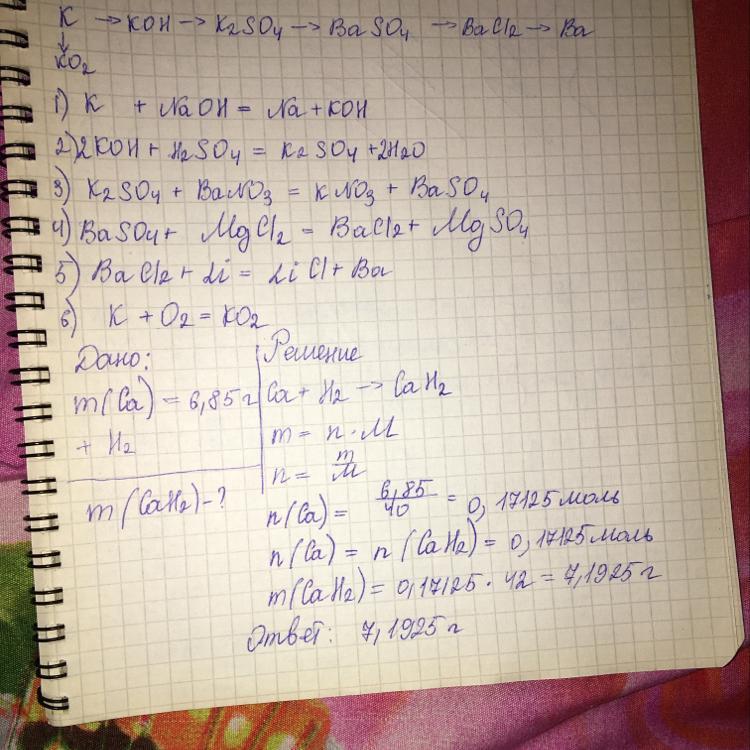 K → KOH → K2SO4 → BaSO4 → BaCl2 → Ba
↓
KO2
1) K + NaOH = Na + KOH
2) 2KOH + H2SO4 = K2SO4 + 2H2O
3) K2SO4 + BaNO3 = KNO3 + BaSO4
4) BaSO4 + MgCl2 = BaCl2 + MgSO4
5) BaCl2 + Li = LiCl + Ba
6) K + O2 = KO2
Дано:
m(Ca) = 6,85 г
+ H2
m(CaH2) - ?
Решение
Ca + H2 → CaH2
m = n · M
n = m/M
n(Ca) = 6,85/40 = 0,17125 моль
n(Ca) = n(CaH2) = 0,17125 моль
m(CaH2) = 0,17125 · 42 = 7,1925 г
Ответ: 7,1925 г